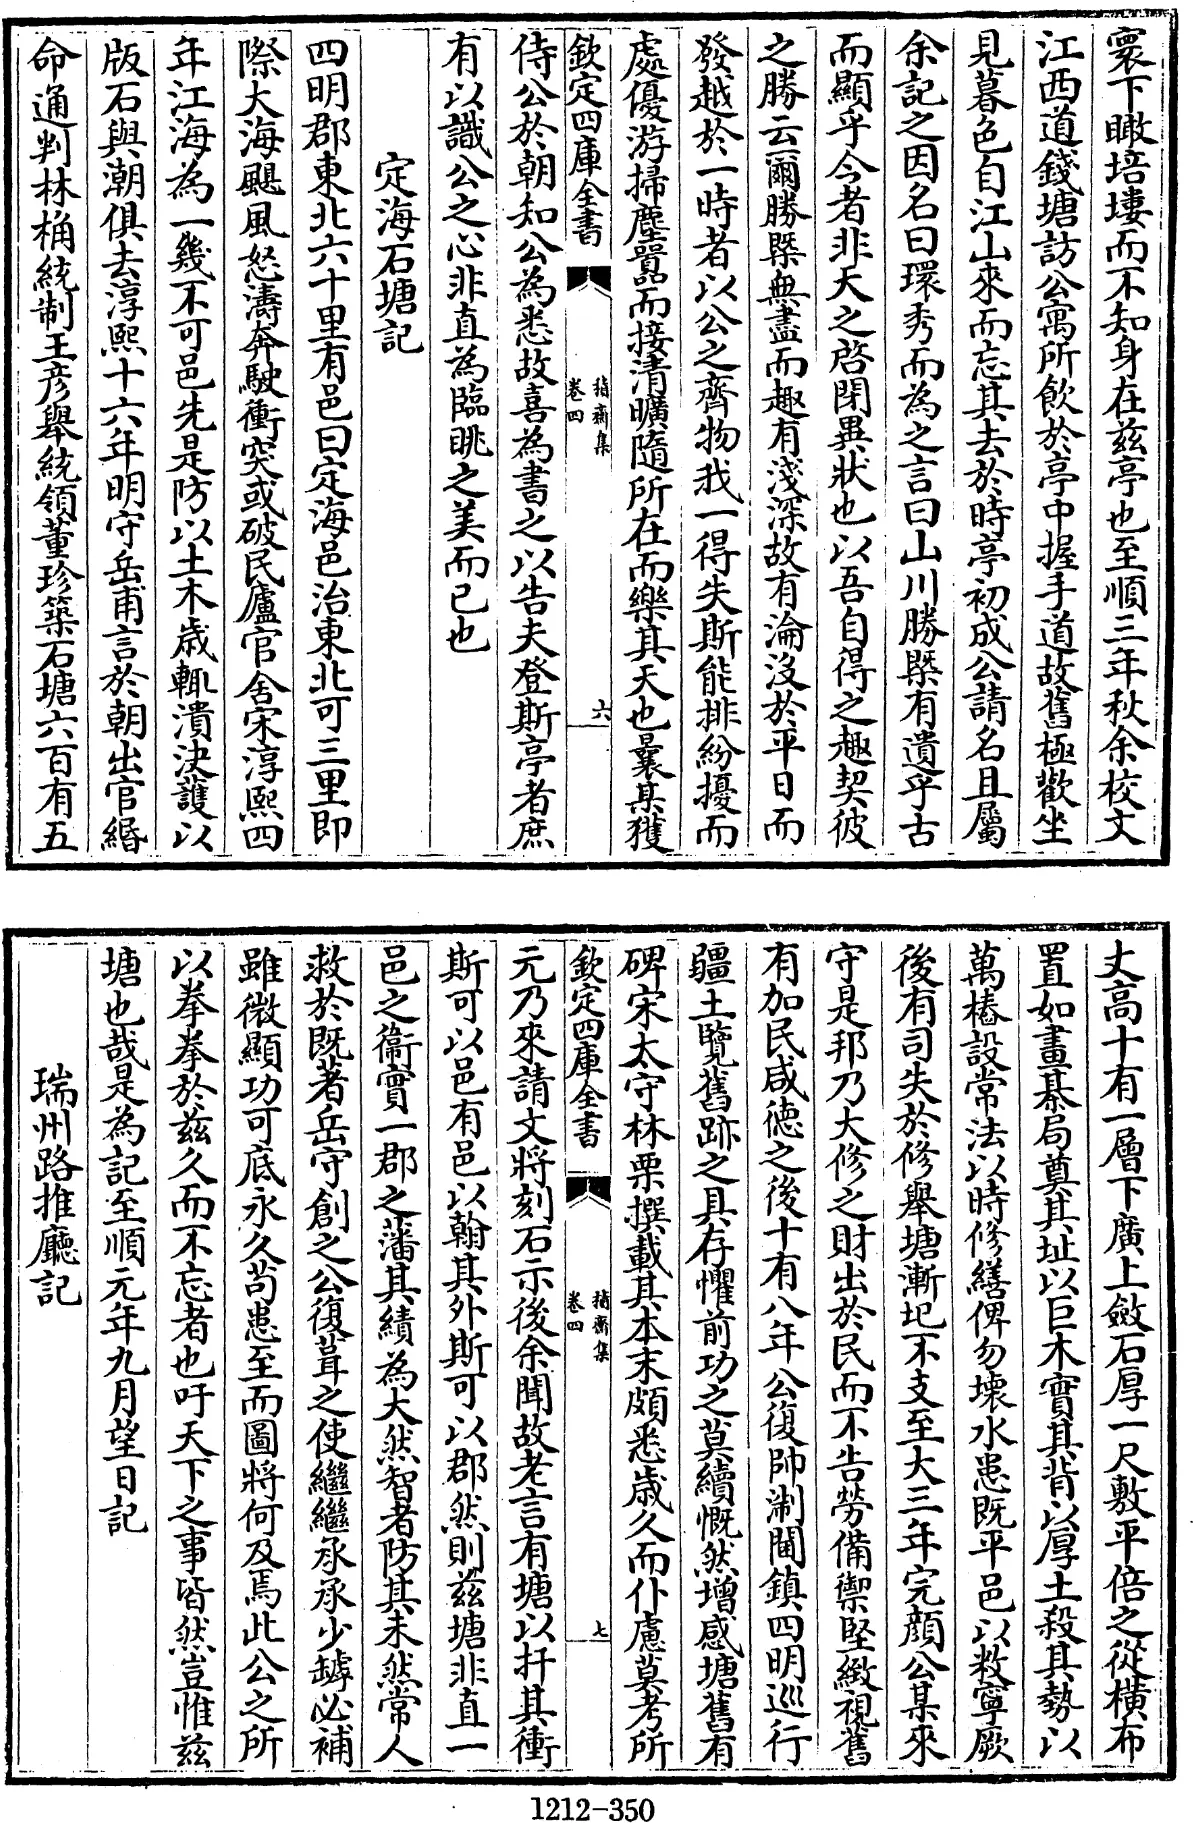 寰下瞰培塿而不知身在兹亭也至順三年秋余校文
江西道錢塘訪公寓所飲於亭中握手道故舊極歡坐
見暮色自江山來而忘其去於時亭初成公請名且屬
余記之因名曰環秀而為之言曰山川勝槩有遺乎古
而顯乎今者非天之啓閉異狀也以吾自得之趣契彼
之勝云爾勝槩無盡而趣有淺深故有淪沒於平日而
發越於一時者以公之齊物我一得失斯能排紛擾而
處優游掃塵囂而接清曠隨所在而樂其天也曩某獲
欽定四庫全書
積齋集
卷四
六
侍公於朝知公為悉故喜為書之以告夫登斯亭者庶
有以識公之心非直為臨眺之美而已也
定海石塘記
四明郡東北六十里有邑曰定海邑治東北可三里即
際大海颶風怒濤奔駛衝突或破民廬官舍宋淳熙四
年江海為一幾不可邑先是防以土木歲輒潰決護以
版石與潮俱去淳熙十六年明守岳甫言於朝出官緡
命通判林桷統制王彥舉統領董珍築石塘六百有五
丈高十有一層下廣上斂石厚一尺敷平倍之從橫布
置如畫棊局奠其址以巨木實其背以厚土殺其勢以
萬樁設常法以時修繕俾勿壞水患既平邑以敉寧厥
後有司失於修舉塘漸圮不支至大三年完顏公某來
守是邦乃大修之財出於民而不告勞備禦堅緻視舊
有加民咸德之後十有八年公復帥淛閫鎮四明巡行
疆土覽舊跡之具存懼前功之莫續慨然增感塘舊有
碑宋太守林栗撰載其本末頗悉歲久而仆慮莫考所
欽定四庫全書
積齋集
卷四
七
元乃來請文將刻石示後余聞故老言有塘以扞其衝
斯可以邑有邑以翰其外斯可以郡然則茲塘非直一
邑之衞實一郡之藩其績為大然智者防其未然常人
救於既著岳守創之公復葺之使繼繼承承少罅必補
雖微顯功可底永久苟患至而圖將何及焉此公之所
以拳拳於茲久而不忘者也吁天下之事皆然豈惟茲
塘也哉是為記至順元年九月望日記
瑞州路推廳記
1212-350